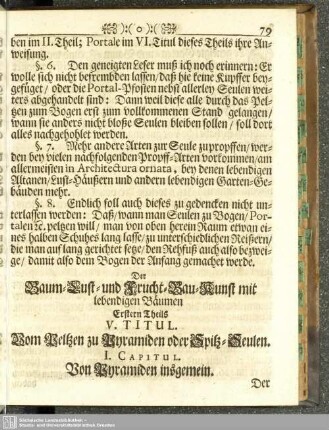 :( o ):
79
ben im II. Theil; Portale im VI. Titul dieses Theils ihre An-
weisung.
§. 6. Den geneigten Leser muß ich noch erinnern: Er
wolle sich nicht befrembden lassen/ daß hie keine Kupffer bey-
gefüget/ oder die Portal-Pfosten nebst allerley Seulen wei-
ters abgehandelt sind: Dann weil diese alle durch das Pel-
zen zum Bogen erst zum vollkommenen Stand gelangen/
wann sie anders nicht blosse Seulen bleiben sollen/ soll dort
alles nachgehohlet werden.
§. 7. Mehr andere Arten zur Seule zu propffen/ wer-
den bey vielen nachfolgenden Propff-Arten vorkommen/ am
allermeisten in Architectura ornata, bey denen lebendigen
Altanen/ Lust-Häusern und andern lebendigen Garten-Ge-
bäuden mehr.
§. 8. Endlich soll auch dieses zu gedencken nicht un-
terlassen werden: Daß/ wann man Seulen zu Bogen/ Por-
talen ꝛc. peltzen will/ man von oben herein Raum etwan ei-
nes halben Schuhes lang lasse/ zu unterschiedlichen Reisern/
die man auf lang gerichtet setze/ den Rehfuß auch also bezwei-
ge/ damit also dem Bogen der Anfang gemachet werde.
Der
Baum-Lust- und Frucht-Bau-Kunst mit
lebendigen Bäumen
Erstern Theils
V. TITUL.
Vom Peltzen zu Pyramiden oder Spitz-Seulen.
I. CAPITUL.
Von Pyramiden insgemein.
Der